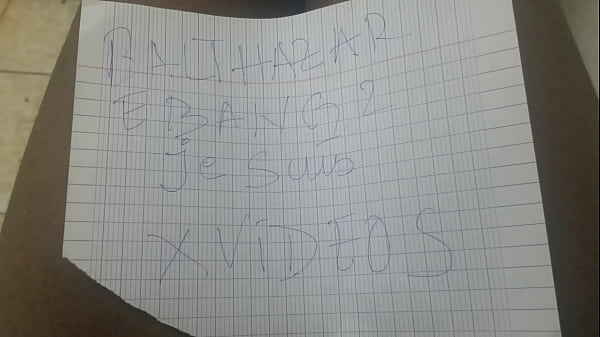 BALTHAZAR
EBANG2
je suis
XVIDEOS